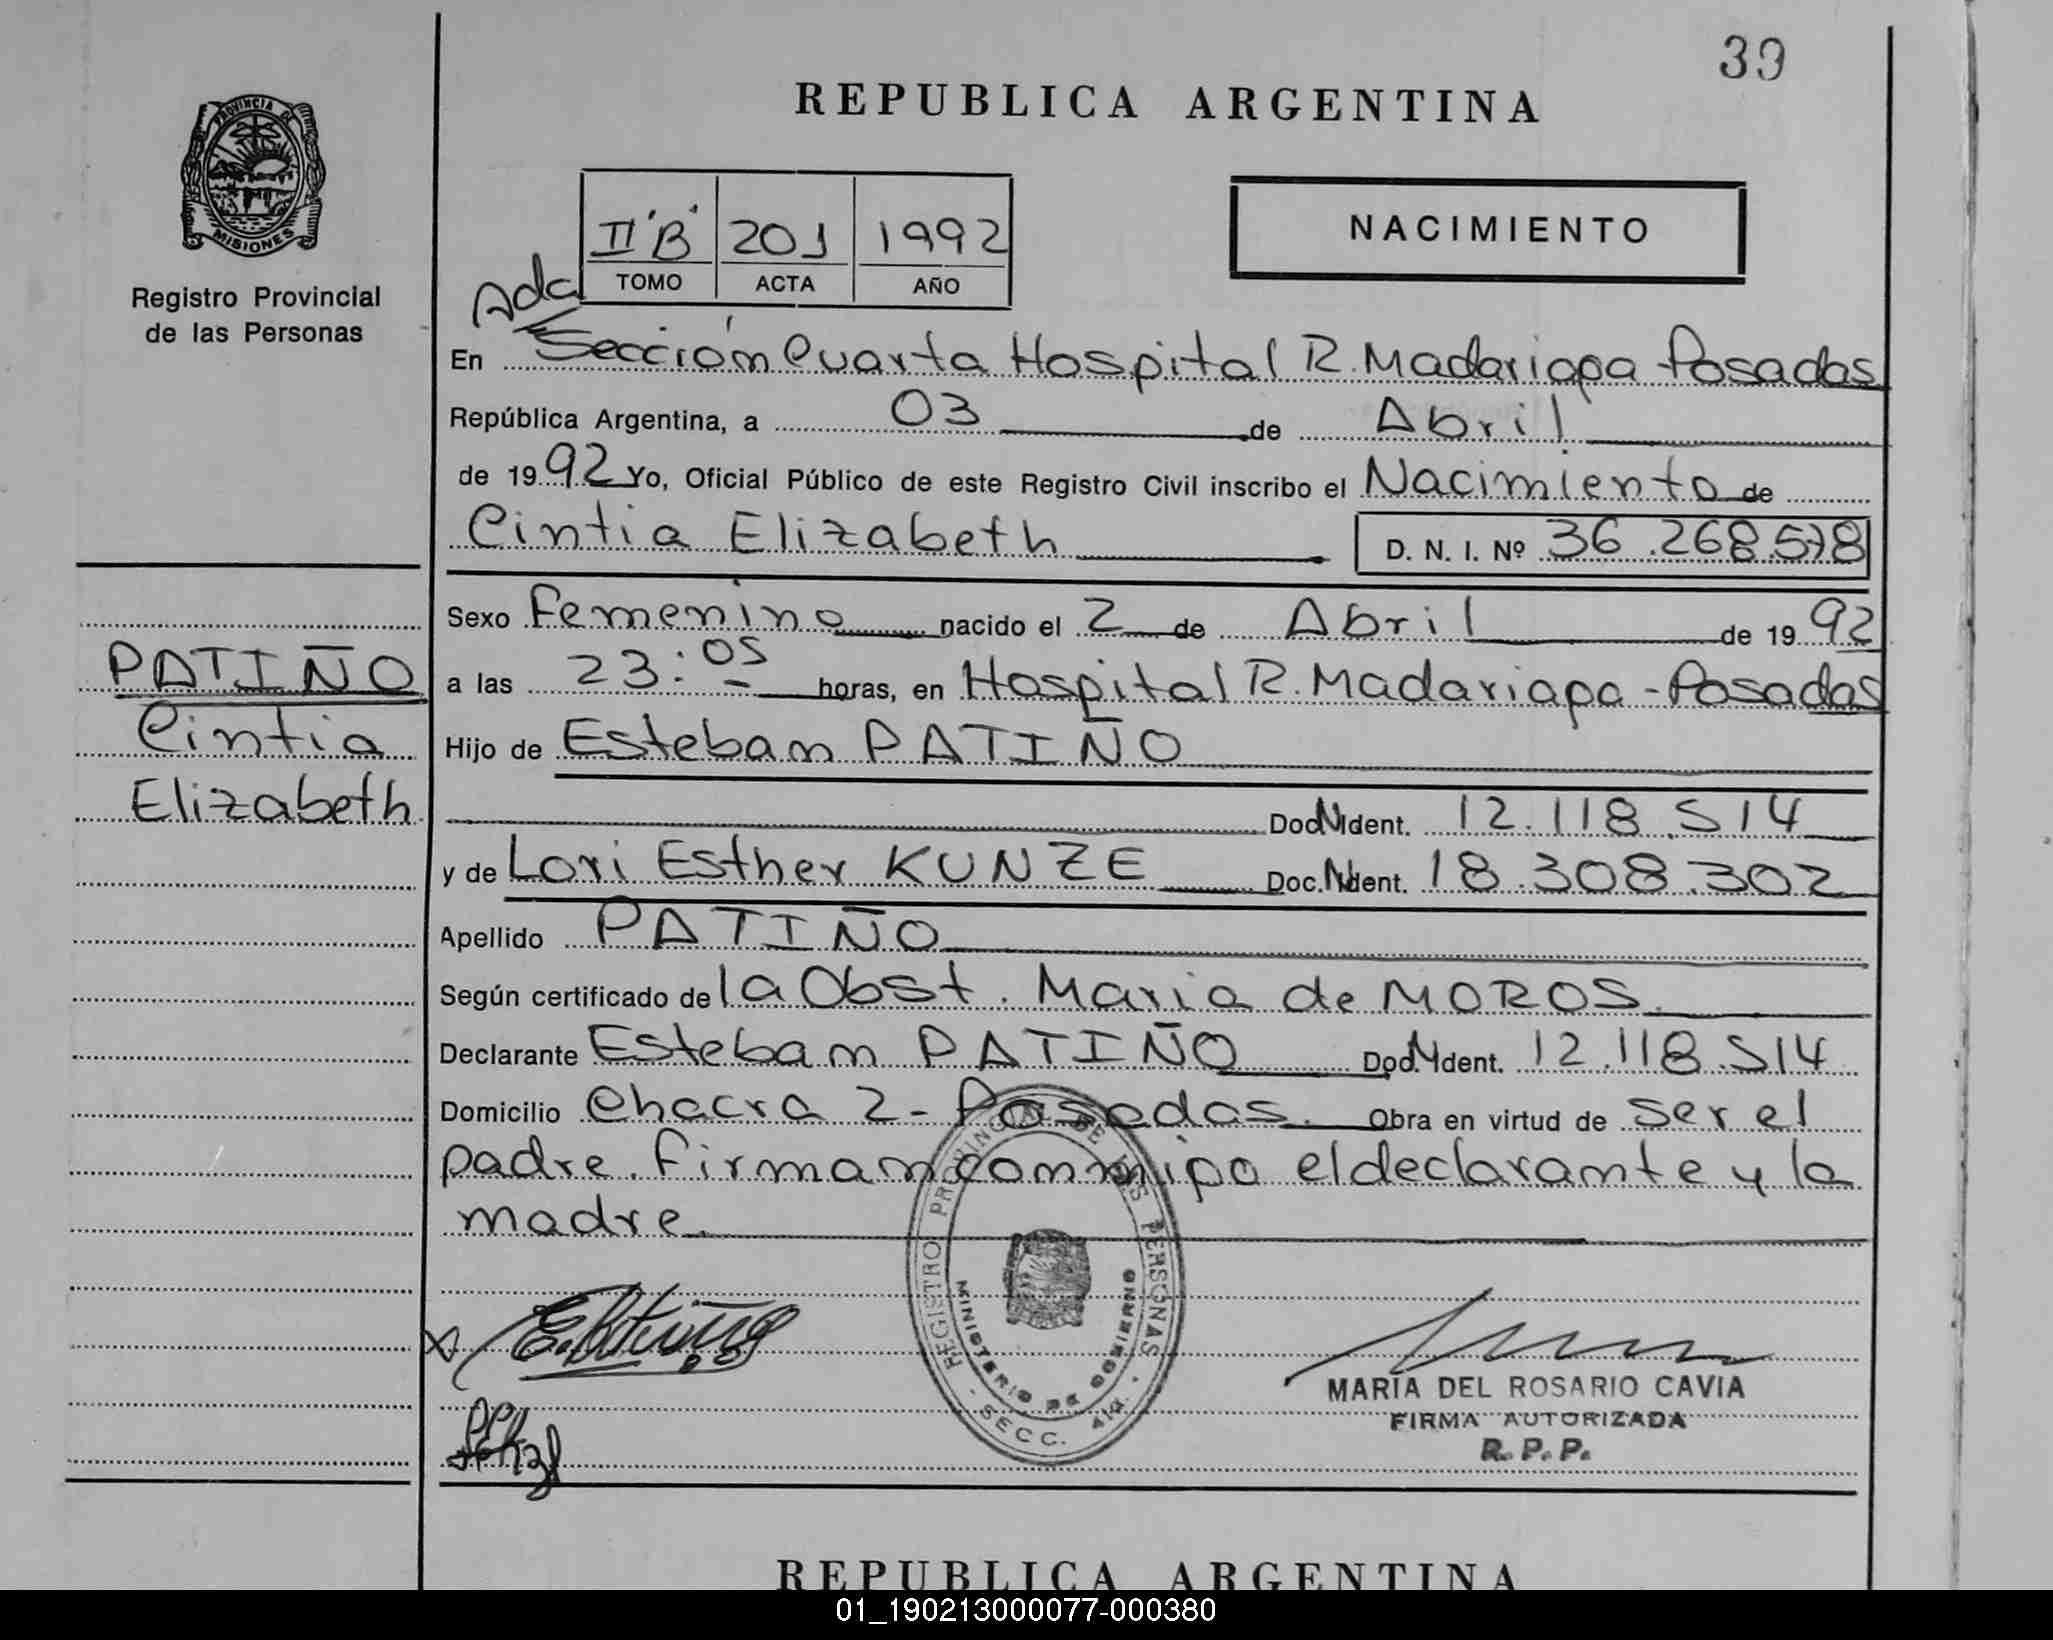 39
REPUBLICA ARGENTINA
PROVINCIA DE
MISIONES
Registro Provincial
de las Personas
NACIMIENTO
II "B" 201 1992
TOMO ACTA AÑO
Ada
En Sección Cuarta Hospital R. Madariaga Posadas
República Argentina, a 03 de Abril
de 1992 Yo, Oficial Público de este Registro Civil inscribo el Nacimiento de
Cintia Elizabeth D. N. I. Nº 36.268.578
Sexo Femenino nacido el 2 de Abril de 1992
a las 23:05 horas, en Hospital R. Madariaga - Posadas
Hijo de Esteban PATIÑO
Doc. N Ident. 12.118.514
y de Lori Esther KUNZE Doc. N Ident. 18.308.302
Apellido PATIÑO
Según certificado de la Obst. Maria de MOROS.
Declarante Esteban PATIÑO Doc. N Ident. 12.118.514
Domicilio Chacra 2 - Posadas. Obra en virtud de ser el
padre. Firman conmigo el declarante y la
madre.
PATIÑO
Cintia
Elizabeth
REGISTRO PROVINCIAL DE LAS PERSONAS
MINISTERIO DE GOBIERNO
- SECC. 4ta. -
MARIA DEL ROSARIO CAVIA
FIRMA AUTORIZADA
R. P. P.
REPUBLICA ARGENTINA
01_190213000077-000380